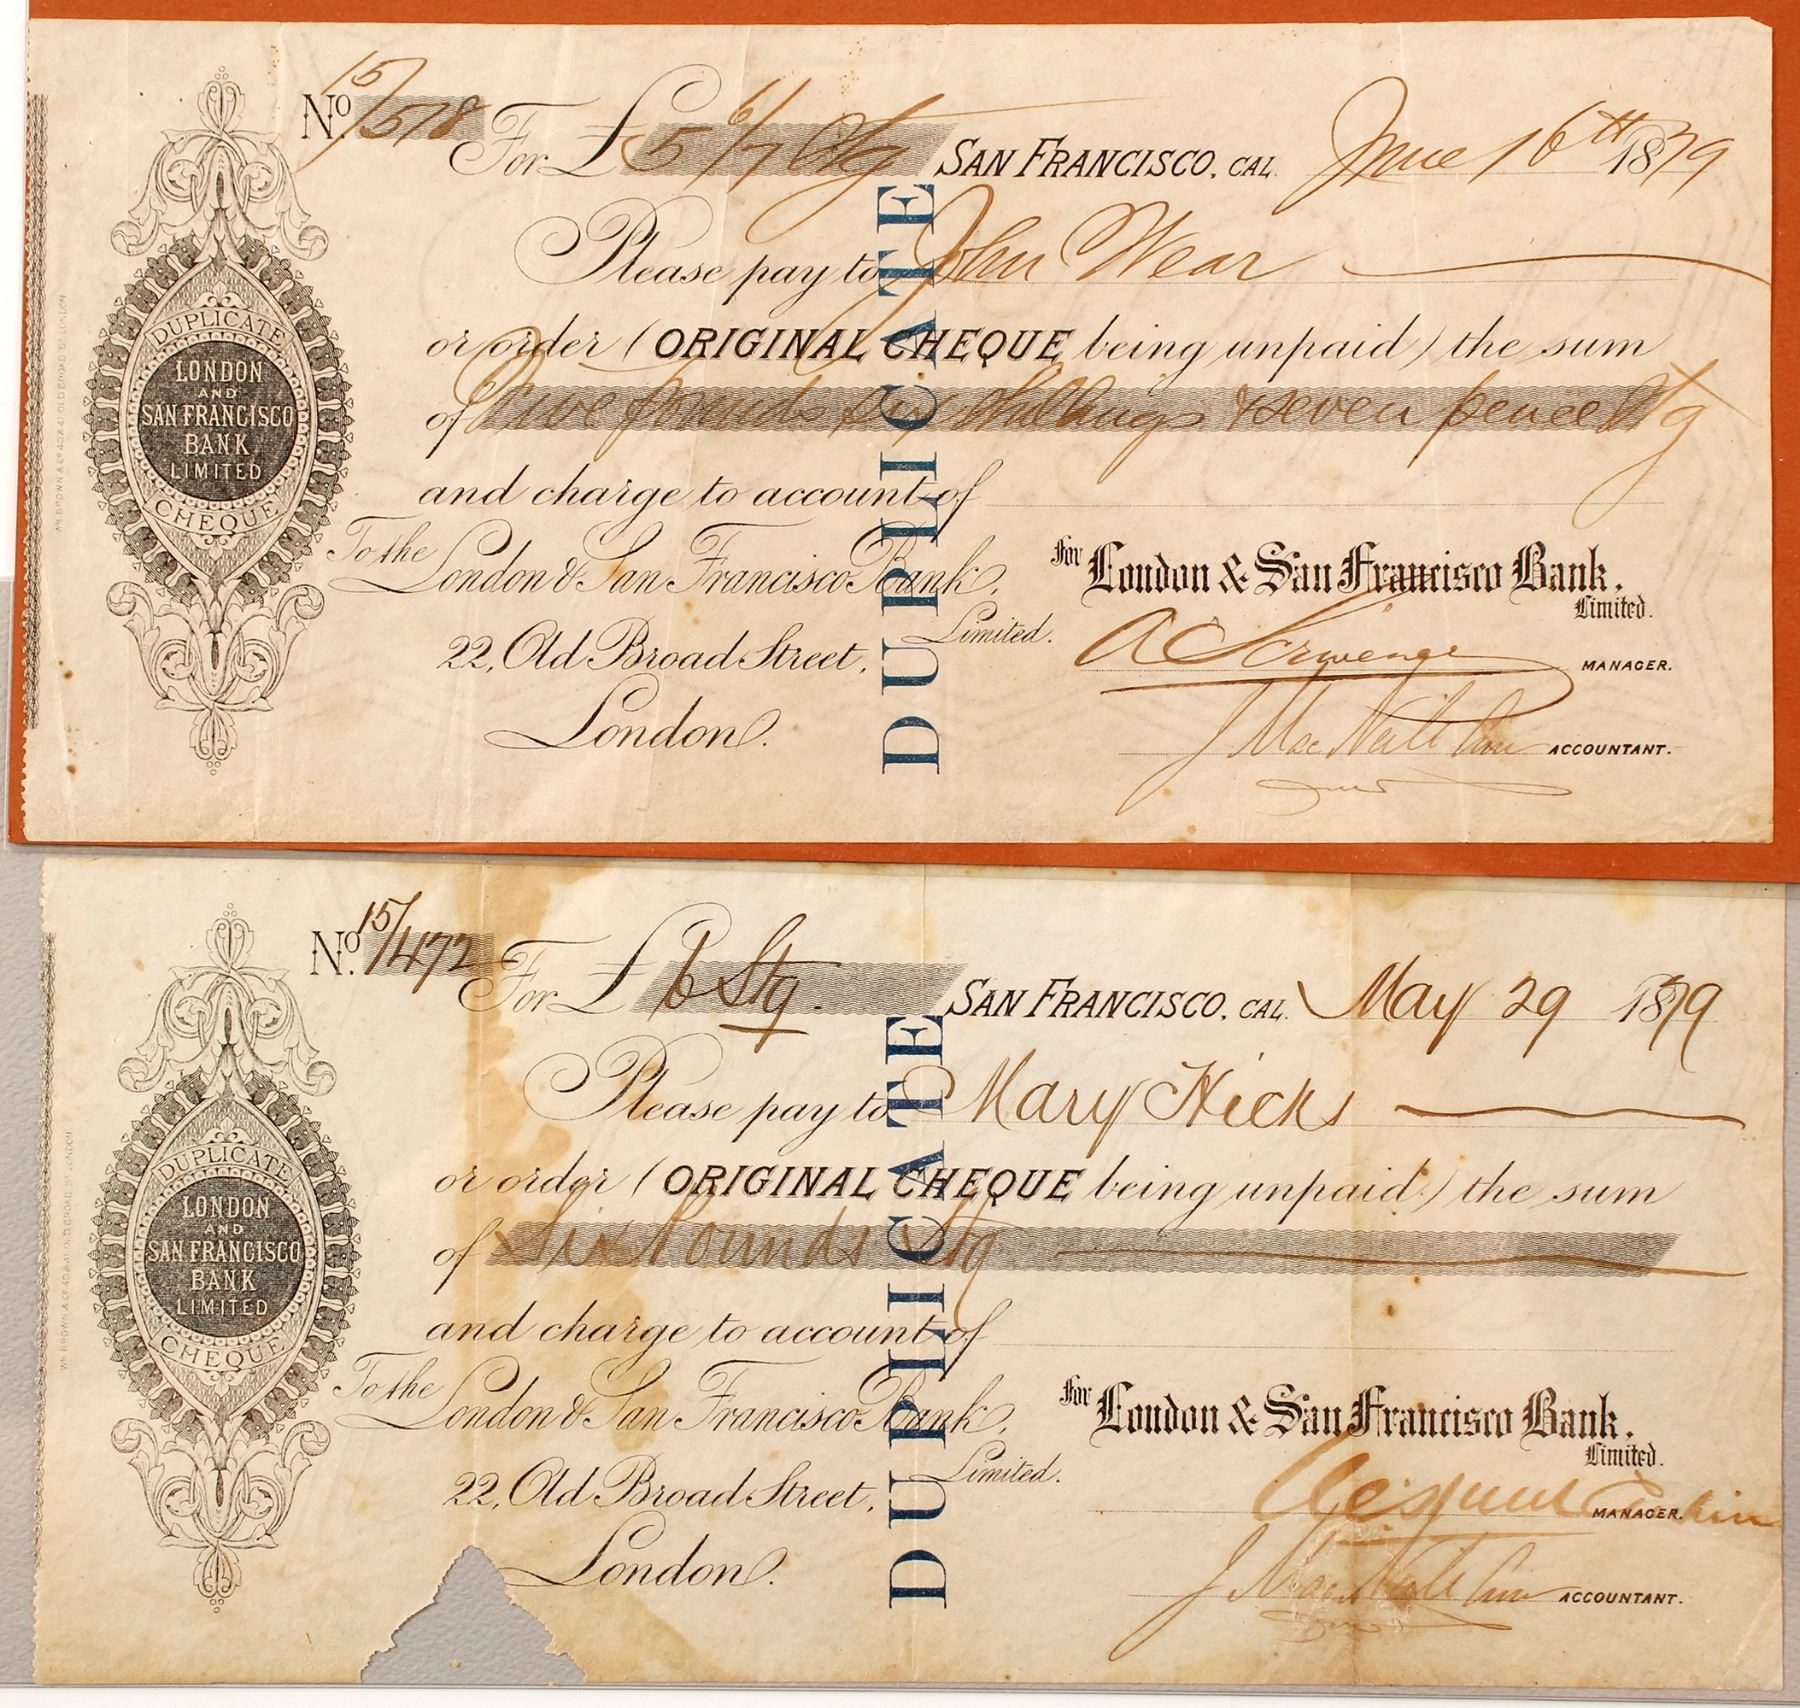 No 15/578 For £ 5 6/7 Stg SAN FRANCISCO, CAL. June 16th 1879
Please pay to John Wear
or order (ORIGINAL CHEQUE being unpaid) the sum
of Five pounds six shillings & seven pence Stg
and charge to account of
To the London & San Francisco Bank,
Limited.
22, Old Broad Street,
London.
For London & San Francisco Bank,
Limited.
MANAGER.
J Mac Neill
ACCOUNTANT.
DUPLICATE
DUPLICATE
LONDON
AND
SAN FRANCISCO
BANK
LIMITED
CHEQUE
No. 15/472 For £ 6 Stg. SAN FRANCISCO, CAL. May 29 1879
Please pay to Mary Hicks
or order (ORIGINAL CHEQUE being unpaid) the sum
of Six Pounds Stg
and charge to account of
To the London & San Francisco Bank,
Limited.
22, Old Broad Street,
London.
For London & San Francisco Bank,
Limited.
MANAGER.
J Mac Neill
ACCOUNTANT.
DUPLICATE
DUPLICATE
LONDON
AND
SAN FRANCISCO
BANK
LIMITED
CHEQUE